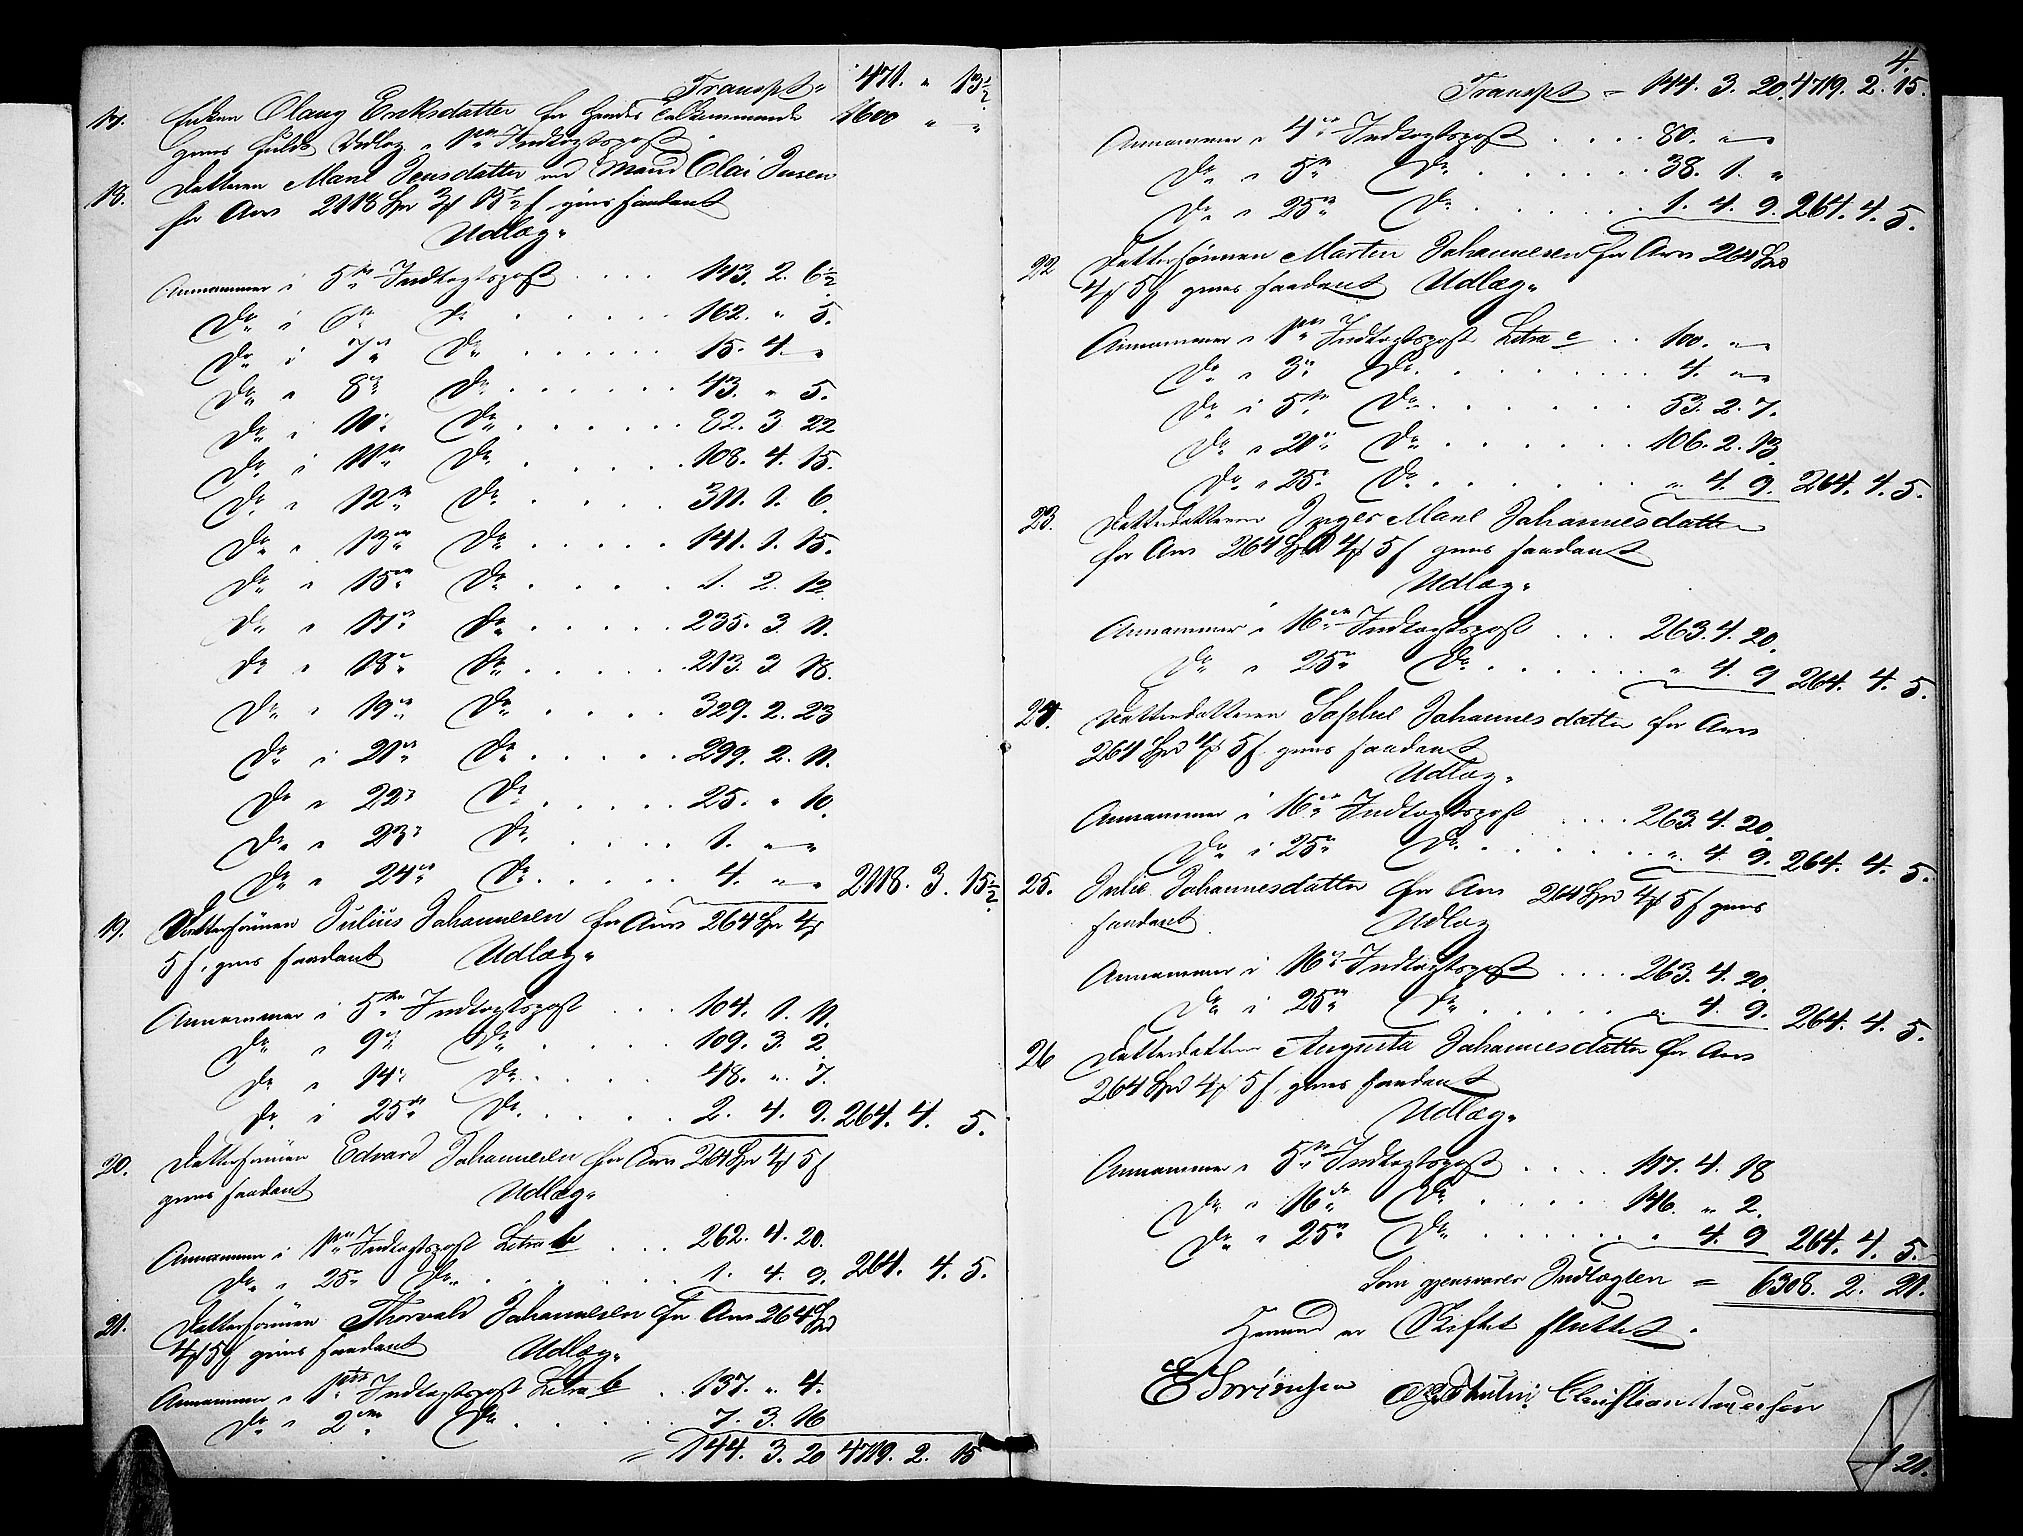 Transpt 471. " 13½
17. Enken Olaug Eriksdatter for hendes tilkommende 1600 " "
gives fuldt Udlæg i 1ste Indtægtspost
18. Datteren Mane Jensdatter ved Mand Olai Jusen
for Arv 2118 Spd 3 15½ gives saadant
Udlæg.
Annammer i 5te Indtægtspost 143. 2. 6½
Do i 6te Do 162. " 5.
Do i 7de Do 15. 4. "
Do i 8de Do 43. " 5.
Do i 10de Do 82. 3 22
Do i 11te Do 108. 4. 15.
Do i 12te Do 311. 1. 6.
Do i 13de Do 141. 1. 15.
Do i 15de Do 1. 2. 12.
Do i 17de Do 235. 3. 11.
Do i 18de Do 213. 3 18.
Do i 19de Do 329. 2. 23
Do i 21de Do 299. 2. 11.
Do i 22de Do 25. " 10.
Do i 23de Do 1. " "
Do i 24de Do 4. " " 2118. 3. 15½
19. Dattersønnen Julius Johannesen for Arv 264 Spd 4
5 s. gives saadant Udlæg.
Annammer i 5te Indtægtspost 104. 1. 11.
Do i 9de Do 109. 3. 2.
Do i 14de Do 48. " 7.
Do i 25de Do 2. 4. 9. 264. 4. 5.
20. Dattersønnen Edvard Johannesen for Arv 264 Spd 4 5 s
gives saadant Udlæg.
Annammer i 1ste Indtægtspost Litra b 262. 4. 20.
Do i 25de Do 1. 4. 9. 264. 4. 5.
21. Dattersønnen Thorvald Johannesen for Arv 264 Spd
4 5 s gives saadant Udlæg.
Annammer i 1ste Indtægtspost Litra b 137. " 4.
Do i 2den Do 7. 3. 16
= 144. 3. 20 4719. 2. 15
4.
Transpt = 144. 3. 20. 4719. 2. 15.
Annammer i 4de Indtægtspost 80. " "
Do i 5te Do 38. 1. "
Do i 25de Do 1. 4. 9. 264. 4. 5.
22 Dattersønnen Martin Johannesen for Arv 264 Spd
4 5 s gives saadant Udlæg.
Annammer i 1ste Indtægtspost Litra c 100. " "
Do i 3de Do 4. " "
Do i 5te Do 53. 2. 7.
Do i 20de Do 106. 2. 13.
Do i 25de Do " 4. 9. 264. 4. 5.
23. Datterdatteren Inger Mane Johannesdatter
for Arv 264 Spd 4 5 s gives saadant
Udlæg.
Annammer i 16de Indtægtspost 263. 4. 20.
Do i 25de Do " 4. 9 264. 4. 5.
24. Datterdatteren Sophie Johannesdatter for Arv
264 Spd 4 5 s. gives saadant
Udlæg.
Annammer i 16de Indtægtspost 263. 4. 20.
Do i 25de Do " 4. 9. 264. 4. 5.
25. Julie Johannesdatter for Arv 264 Spd 4 5 s gives
saadant Udlæg
Annammer i 16de Indtægtspost 263. 4. 20.
Do i 25de Do " 4. 9. 264. 4. 5.
26 Datterdatteren Augusta Johannesdatter for Arv
264 Spd 4 5 s gives saadant
Udlæg.
Annammer i 5te Indtægtspost 117. 4. 18
Do i 16de Do 146. " 2.
Do i 25de Do " 4. 9 264. 4. 5.
Som gjensvarer Indtægten = 6308. 2. 21.
Hermed er Skiftet sluttet.
E Sørensen Christian Andersen
21.